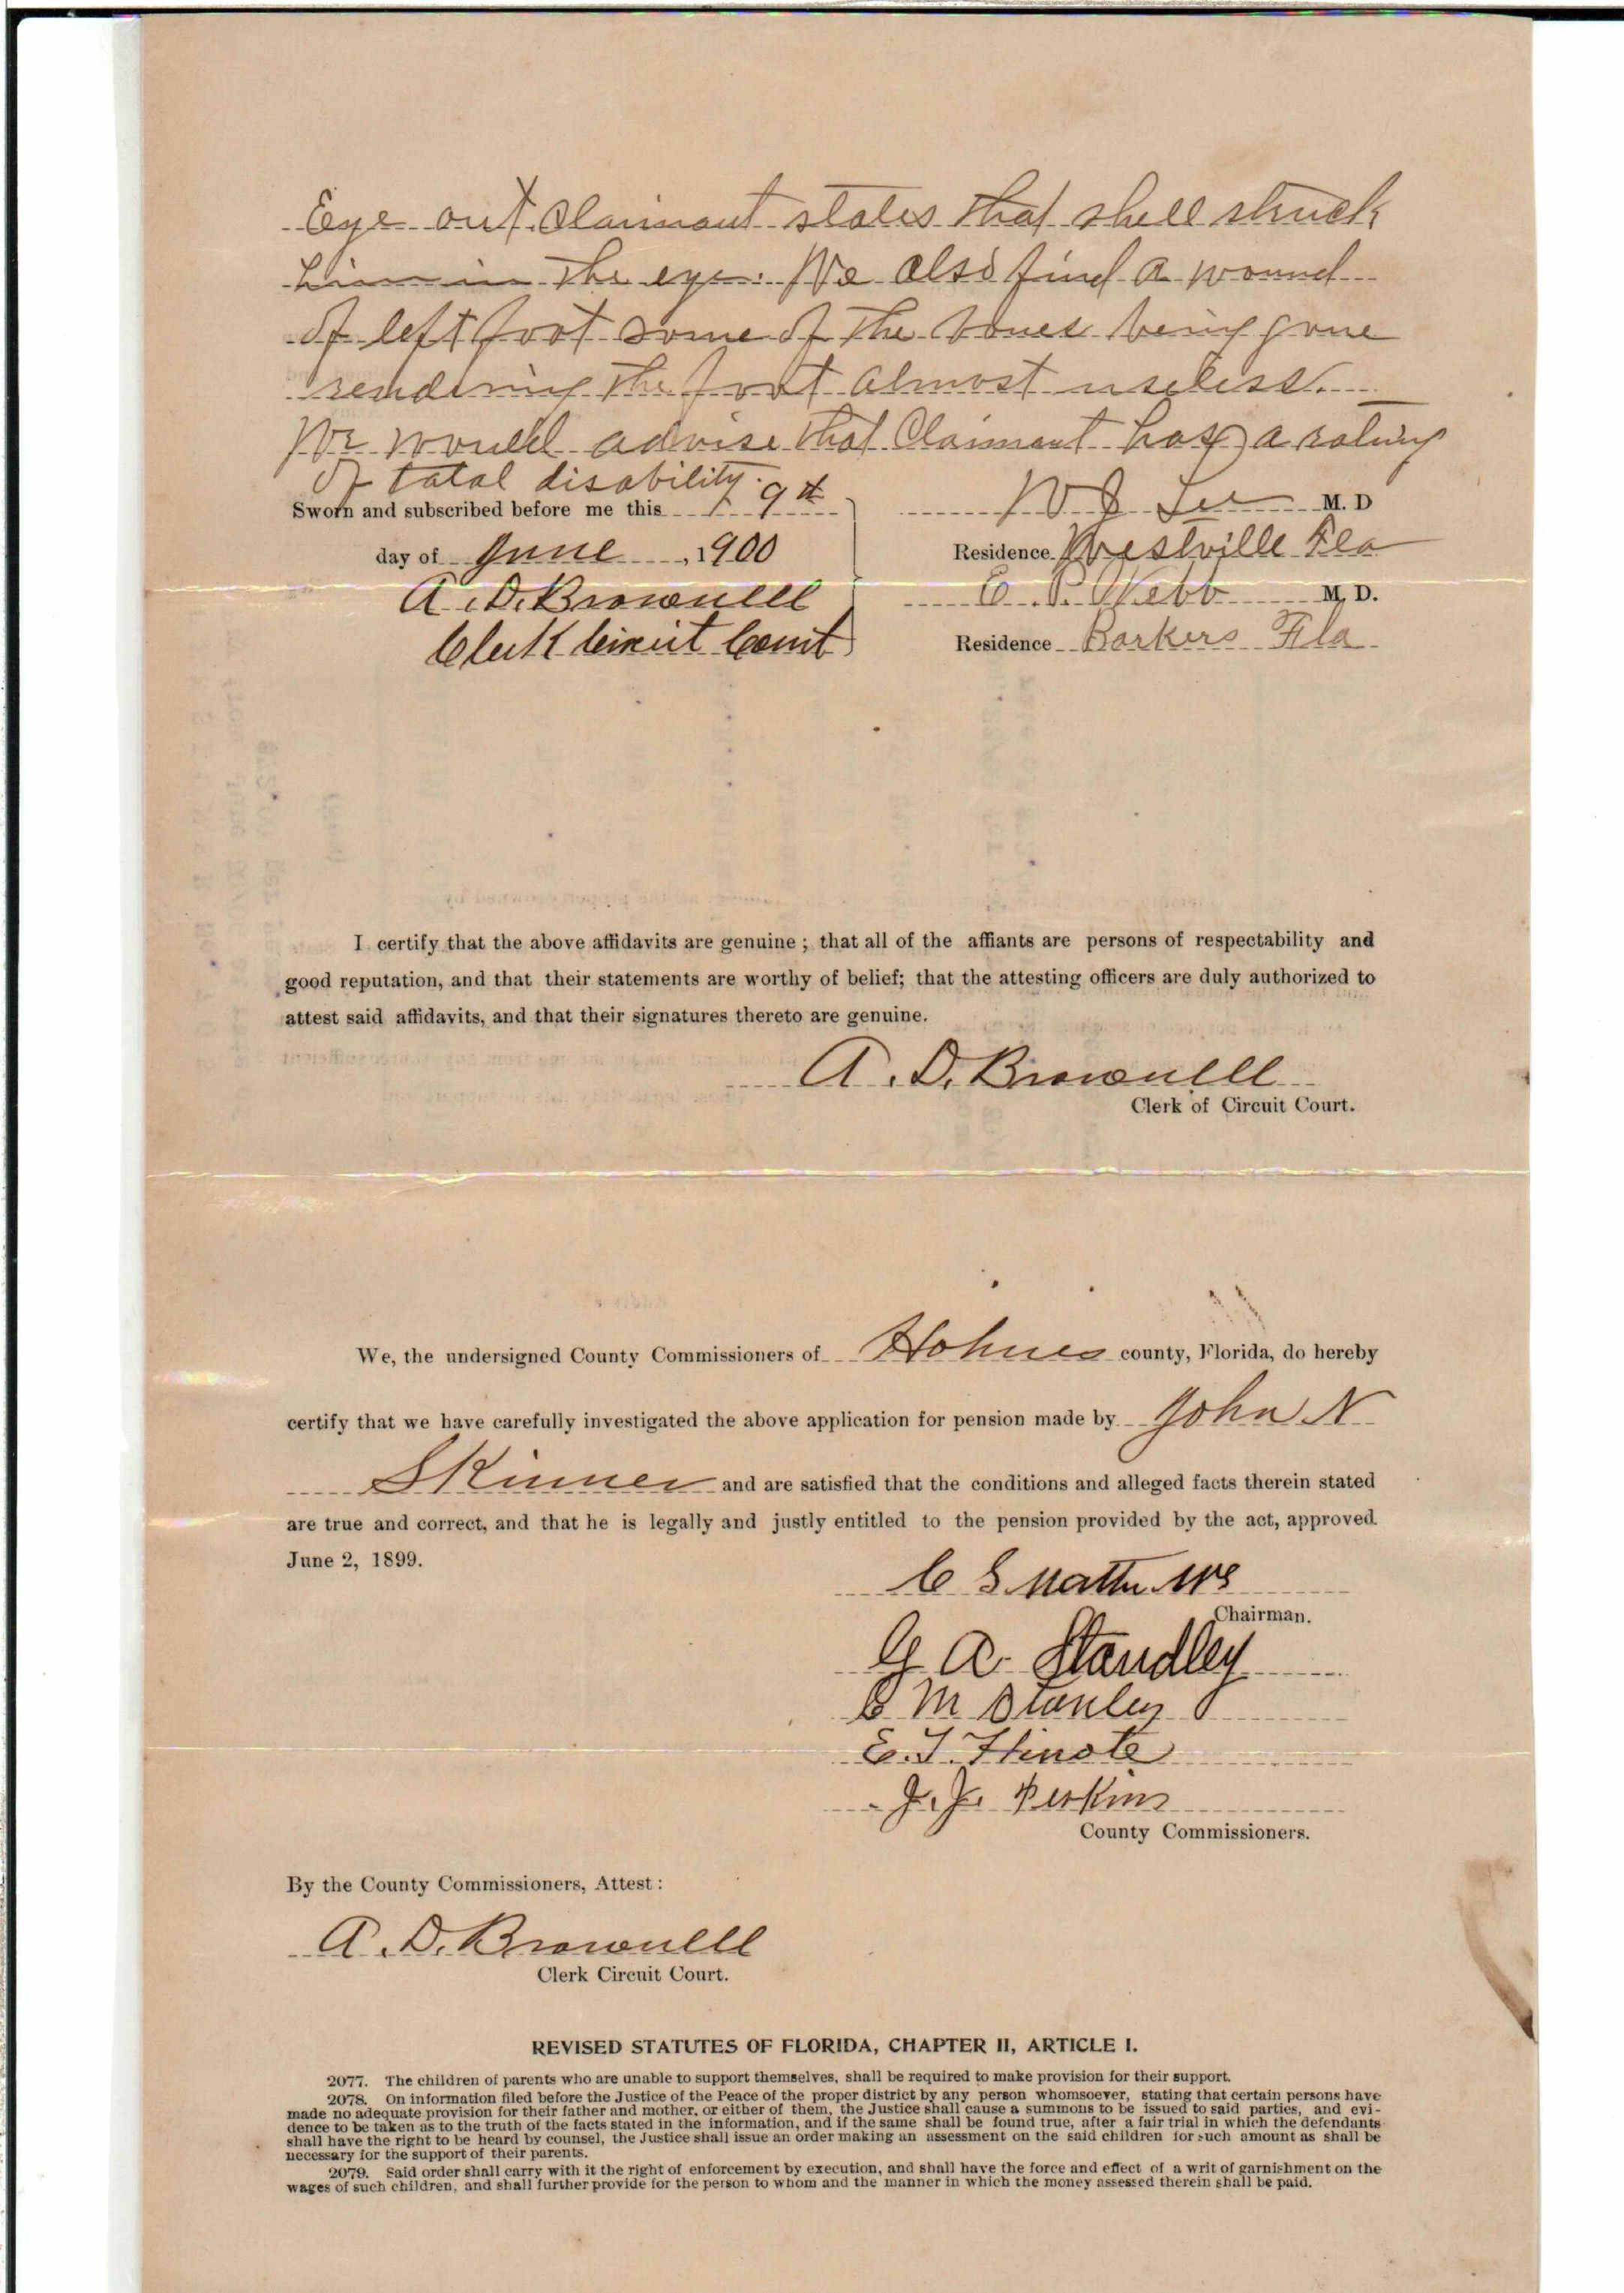 Eye out. Claimant states that shell struck
him in the eye. We also find a wound
of left foot some of the bones being gone
rendering the foot almost useless.
We would advise that Claimant has a rating
of total disability.
Sworn and subscribed before me this 9th
day of June, 1900
A. D. Brownell
Clerk Circuit Court
W J Lee M. D
Residence Westville Fla
E. P. Webb M. D.
Residence Barkers Fla
I certify that the above affidavits are genuine; that all of the affiants are persons of respectability and
good reputation, and that their statements are worthy of belief; that the attesting officers are duly authorized to
attest said affidavits, and that their signatures thereto are genuine.
A. D. Brownell
Clerk of Circuit Court.
We, the undersigned County Commissioners of Holmes county, Florida, do hereby
certify that we have carefully investigated the above application for pension made by John N
Skinner and are satisfied that the conditions and alleged facts therein stated
are true and correct, and that he is legally and justly entitled to the pension provided by the act, approved
June 2, 1899.
C S Matthews
Chairman.
G A. Standley
M Stanley
E. T. Hinote
J. J. Perkins
County Commissioners.
By the County Commissioners, Attest:
A. D. Brownell
Clerk Circuit Court.
REVISED STATUTES OF FLORIDA, CHAPTER II, ARTICLE I.
2077. The children of parents who are unable to support themselves, shall be required to make provision for their support.
2078. On information filed before the Justice of the Peace of the proper district by any person whomsoever, stating that certain persons have
made no adequate provision for their father and mother, or either of them, the Justice shall cause a summons to be issued to said parties, and evi-
dence to be taken as to the truth of the facts stated in the information, and if the same shall be found true, after a fair trial in which the defendants
shall have the right to be heard by counsel, the Justice shall issue an order making an assessment on the said children for such amount as shall be
necessary for the support of their parents.
2079. Said order shall carry with it the right of enforcement by execution, and shall have the force and effect of a writ of garnishment on the
wages of such children, and shall further provide for the person to whom and the manner in which the money assessed therein shall be paid.